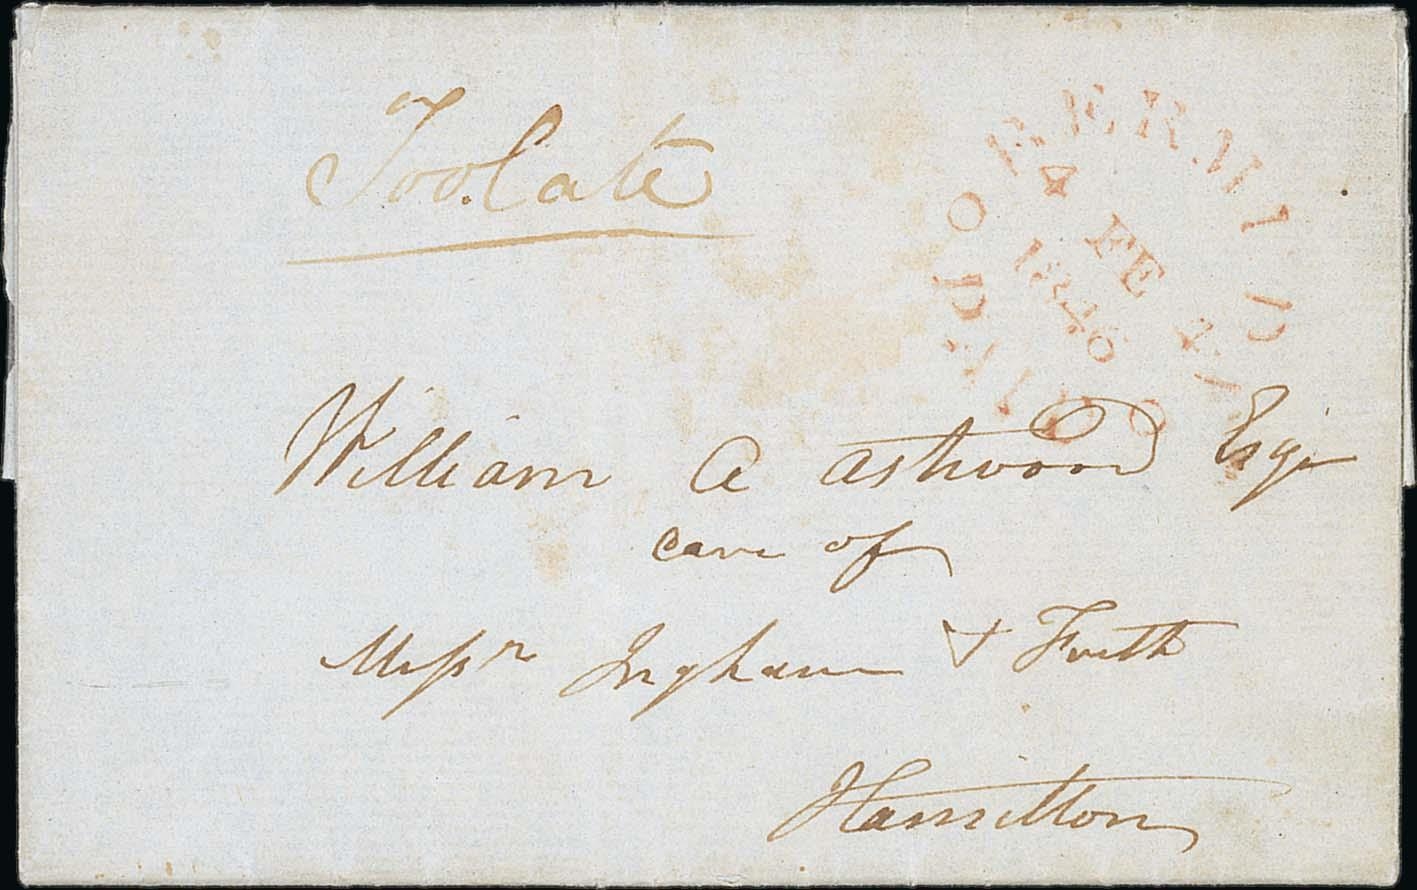 Too Late
BERMUDA
4 FE
1846
PAID
William A Astwood Esqr
care of
Messrs Ingham & Frith
Hamilton